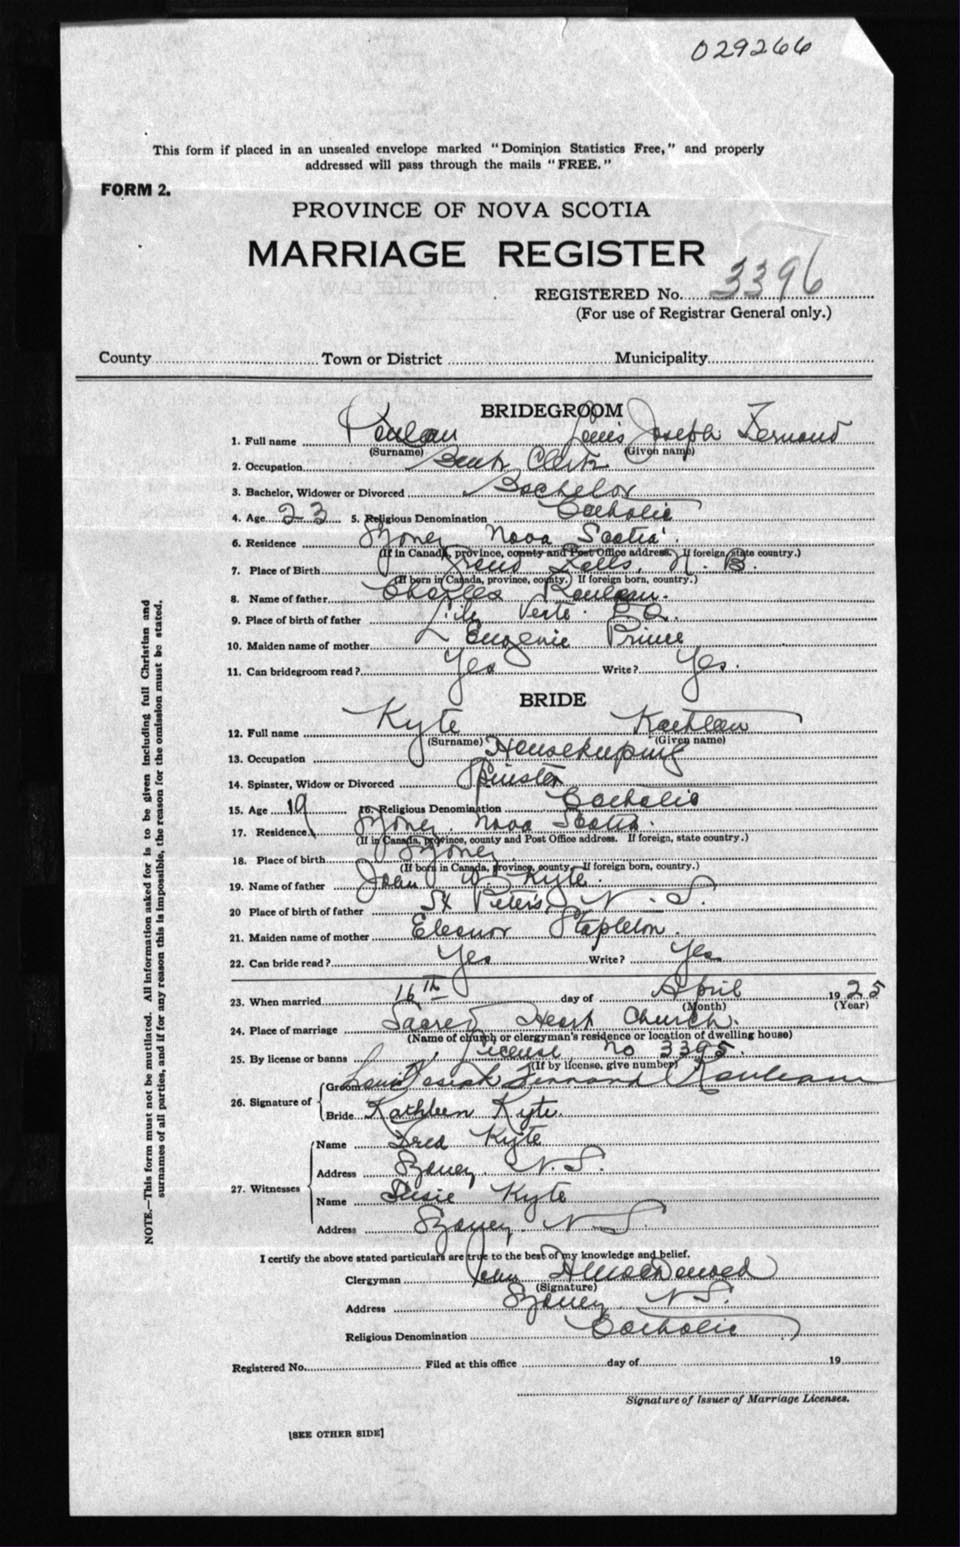 029266
This form if placed in an unsealed envelope marked "Dominion Statistics Free," and properly
addressed will pass through the mails "FREE."
FORM 2.
PROVINCE OF NOVA SCOTIA
MARRIAGE REGISTER
REGISTERED No. 3396
(For use of Registrar General only.)
County Town or District Municipality
BRIDEGROOM
1. Full name Rouleau Louis Joseph Fernand
(Surname) (Given name)
2. Occupation Bank Clerk
3. Bachelor, Widower or Divorced Bachelor
4. Age 23 5. Religious Denomination Catholic
6. Residence Sydney Nova Scotia.
(If in Canada, province, county and Post Office address. If foreign, state country.)
7. Place of Birth Grand Falls, N. B.
(If born in Canada, province, county.) If foreign born, country.)
8. Name of father Charles Rouleau.
9. Place of birth of father L'ile Verte. P.Q.
10. Maiden name of mother Eugenie Prince
11. Can bridegroom read? Yes Write? Yes.
BRIDE
12. Full name Kyte Kathleen
(Surname) (Given name)
13. Occupation Housekeeping
14. Spinster, Widow or Divorced Spinster
15. Age 19 16. Religious Denomination Catholic
17. Residence Sydney, Nova Scotia.
(If in Canada, province, county and Post Office address. If foreign, state country.)
18. Place of birth Sydney
(If born in Canada, province, county—If foreign born, country.)
19. Name of father John W. Kyte.
20 Place of birth of father St Peters, N. S.
21. Maiden name of mother Eleanor Stapleton.
22. Can bride read? Yes Write? Yes
23. When married 16th day of April 1925
(Month) (Year)
24. Place of marriage Sacred Heart Church.
(Name of church or clergyman's residence or location of dwelling house)
25. By license or banns License No 3395.
(If by license, give number)
26. Signature of Groom Louis Joseph Fernand Rouleau
Bride Kathleen Kyte.
27. Witnesses Name Fred Kyte
Address Sydney N.S.
Name Susie Kyte
Address Sydney N.S.
I certify the above stated particulars are true to the best of my knowledge and belief.
Clergyman John
(Signature)
Address Sydney N.S.
Religious Denomination Catholic
Registered No. Filed at this office day of 19
Signature of Issuer of Marriage Licenses.
[SEE OTHER SIDE]
NOTE.—This form must not be mutilated. All information asked for is to be given including full Christian and
surnames of all parties, and if for any reason this is impossible, the reason for the omission must be stated.